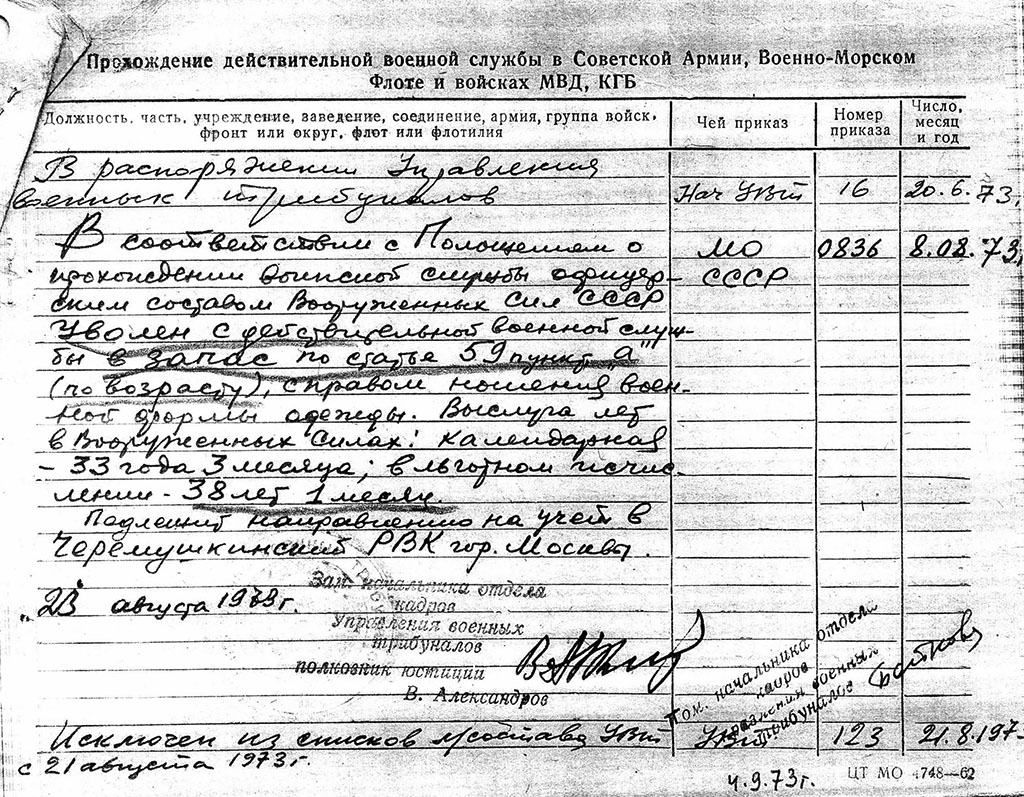 Прохождение действительной военной службы в Советской Армии, Военно-Морском
Флоте и войсках МВД, КГБ
Должность, часть, учреждение, заведение, соединение, армия, группа войск,
фронт или округ, флот или флотилия
Чей приказ
Номер
приказа
Число,
месяц
и год
В распоряжении Управления
военных трибуналов Нач УВТ 16 20.6.73.
В соответствии с Положением о МО 0836 8.08.73.
прохождении воинской службы офицер- СССР
ским составом Вооруженных Сил СССР
Уволен с действительной военной служ-
бы в запас по статье 59 пункт "а"
(по возрасту), с правом ношения воен-
ной формы одежды. Выслуга лет
в Вооруженных Силах: календарная
- 33 года 3 месяца; в льготном исчис-
лении - 38 лет 1 месяц.
Подлежит направлению на учет в
Черемушкинский РВК гор. Москвы.
Зам. начальника отдела
"23" августа 1973г. кадров
Управления военных
трибуналов
полковник юстиции
В. Александров
Пом. начальника отдела
кадров
Управления военных
трибуналов
Исключен из списков л/состава УВТ УВТ 123 21.8.197
с 21 августа 1973г.
4.9.73г. ЦТ МО 4748—62